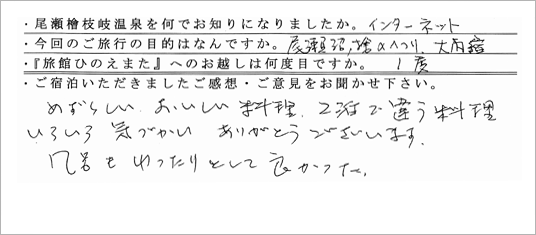 ・尾瀬檜枝岐温泉を何でお知りになりましたか。インターネット
・今回のご旅行の目的はなんですか。尾瀬沼、塔のへつり、大内宿
・『旅館ひのえまた』へのお越しは何度目ですか。 1度
・ご宿泊いただきましたご感想・ご意見をお聞かせ下さい。
めずらしい、おいしい料理、2泊で違う料理
いろいろ気づかい ありがとうございます。
風呂もゆったりとして良かった。